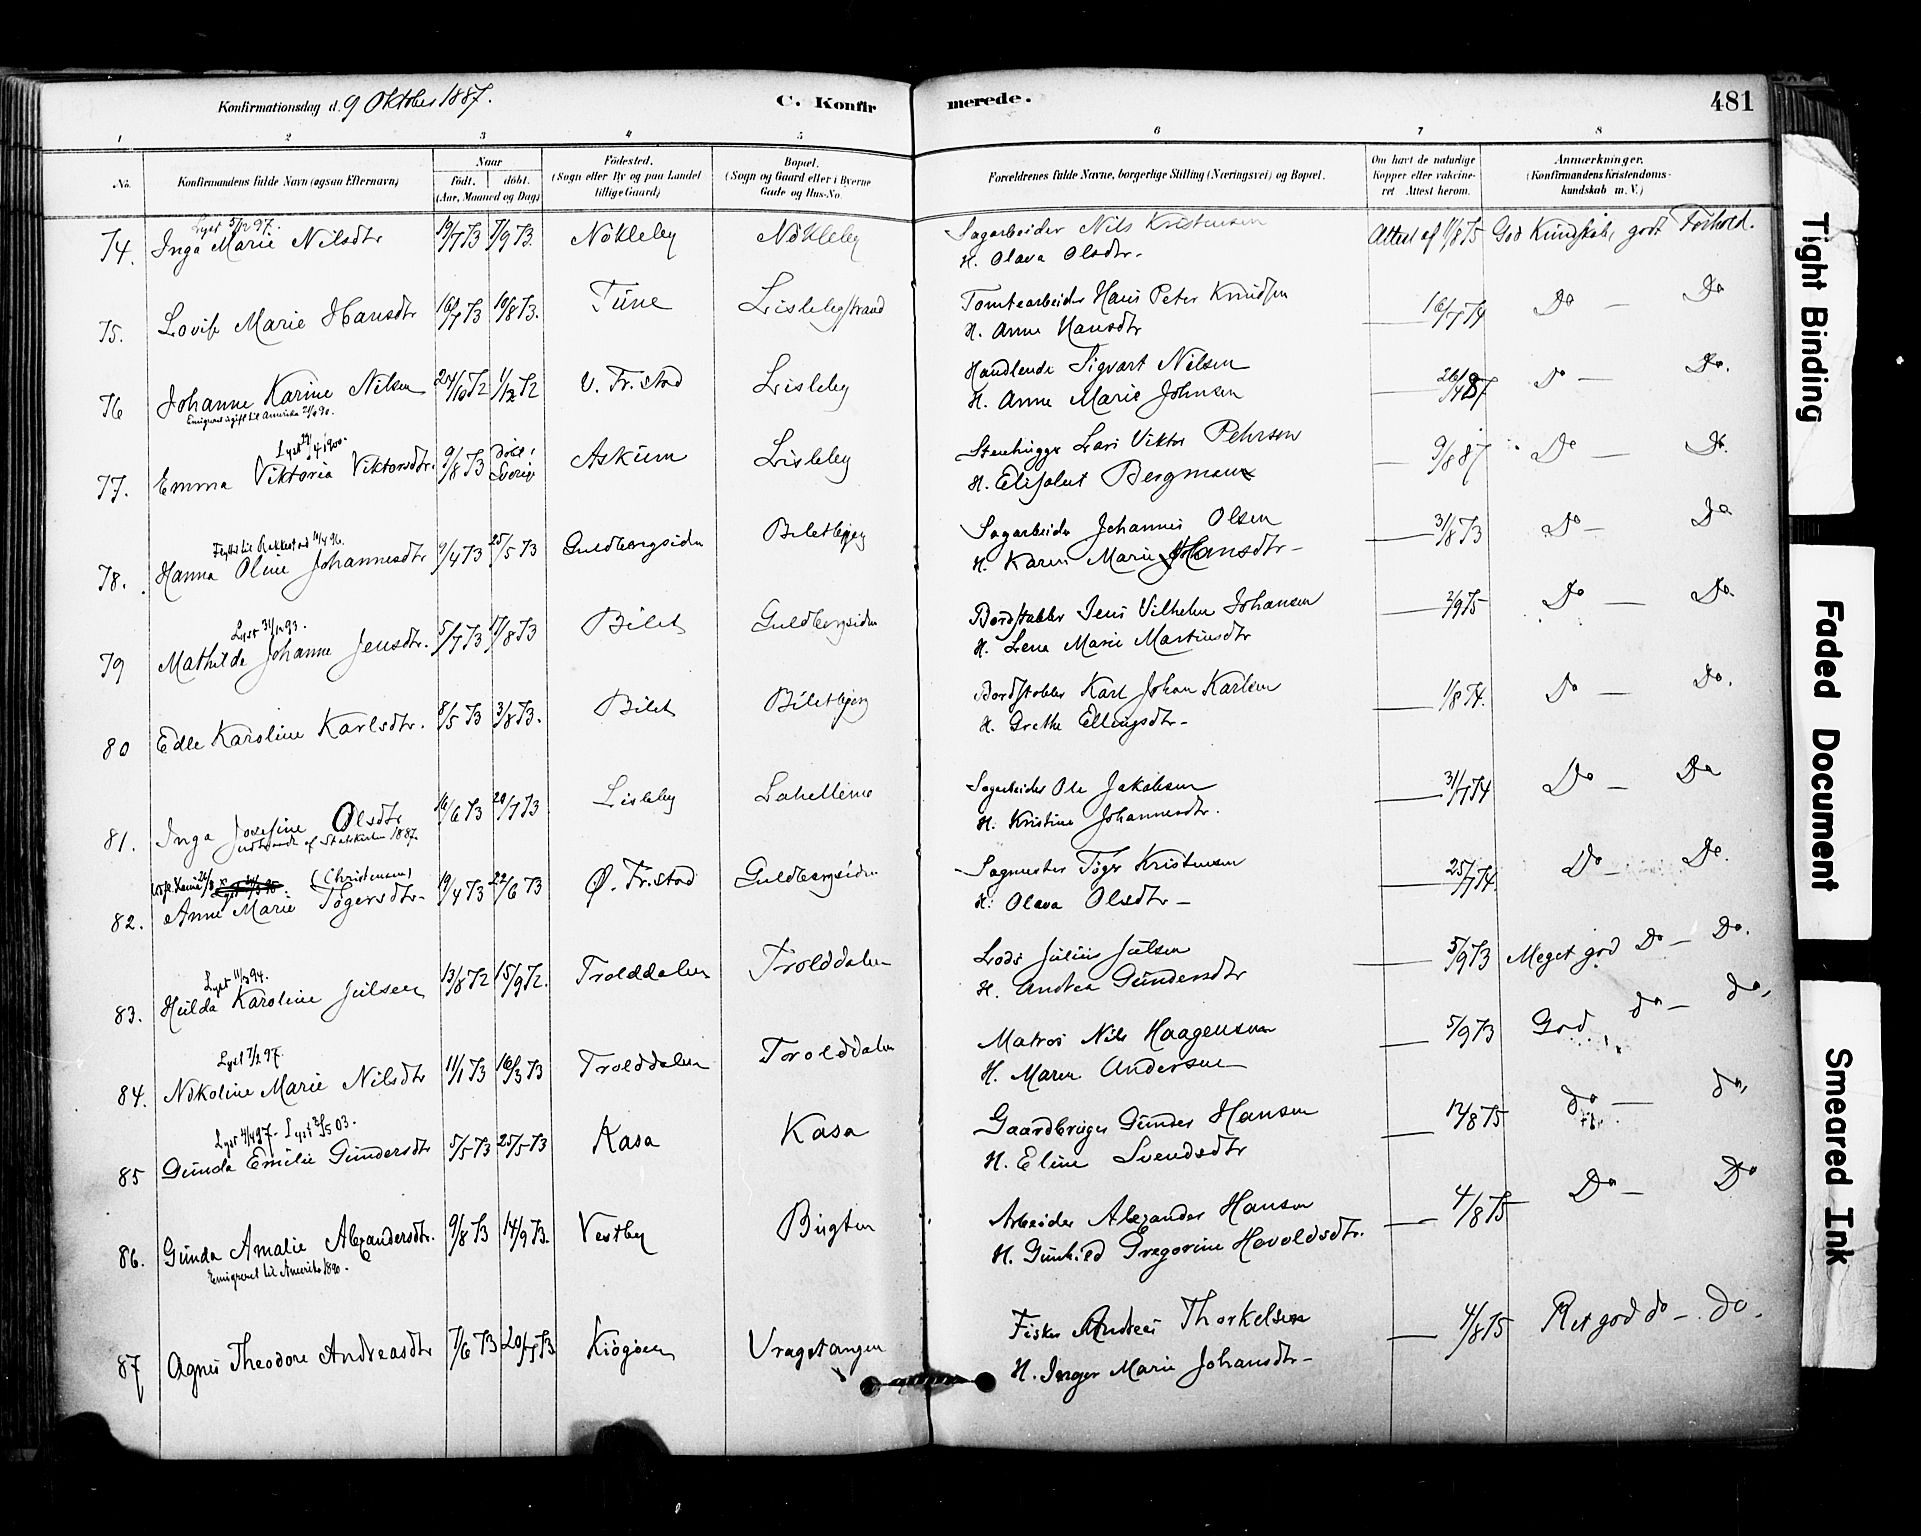 Konfirmationsdag d. 9 Oktober 1887.
C. Konfirmerede.
481
1 2 3 4 5 6 7 8
No.
Konfirmandens fulde Navn (ogsaa Efternavn)
Naar
Födt. döbt.
(Aar, Maaned og Dag)
Födested.
(Sogn eller By og paa Landet tillige Gaard)
Bopæl.
(Sogn og Gaard eller i Byerne Gade og Hus-No.
Forældrenes fulde Navne, borgerlige Stilling (Næringsvei) og Bopæl.
Om havt de naturlige Kopper eller vakcineret Attest herom.
Anmærkninger.
(Konfirmandens Kristendomskundskab m. V.)
Lyst 5/12 97.
74. Inga Marie Nilsdtr 19/7 73 7/9 73. Nökleby Nökleby Sagarbeider Nils Kristensen Attest af 11/8 75 God Kundskab, godt Forhold.
H. Olava Olsdtr.
75. Lovise Marie Hansdtr 16/7 73 10/8 73. Tune Lislebystrand Tomtearbeider Hans Peter Knudsen 16/7 74 Do — Do
H. Anne Hansdtr
76 Johanne Karine Nilsen 24/10 72 1/12 72 V. Fr.stad Lisleby Handlende Sigvart Nilsen 26/4 87 Do — Do.
Emigreret ugift til Amerika 2/5 90. H. Anne Marie Johnsen
Lyst 29/4 1900.
77. Emma Viktoria Viktorsdtr. 9/8 73 Döbt i Sverig Askum Lisleby Stenhugger Lars Viktor Pehrson 9/8 87 Do — Do.
H. Elisabet Bergman
Flyttet til Rakkestad 14/4 96.
78. Hanna Oline Johannesdtr 9/4 73 25/5 73 Guldbergsiden Biletbyen Sagarbeider Johannes Olsen 31/8 73 Do — Do
H. Karen Marie Hansdtr —
Lyst 31/12 93.
79 Mathilde Johanne Jensdtr. 5/7 73 17/8 73 Bilet Guldbergsiden Bordstabler Jens Vilhelm Johansen 2/9 75 Do — Do.
H. Lena Marie Martinsdtr
80 Edle Karoline Karlsdtr. 8/5 73 3/8 73. Bilet Biletbyen Bordstabler Karl Johan Karlsen 1/8 74. Do — Do.
H. Grethe Ellingsdtr —
81. Inga Josefine Olsdtr 16/6 73 20/7 73 Lisleby Lahellene Sagarbeider Ole Jakobsen 31/7 74 Do — Do
udtraadt af Statskirken 1887. H. Kristine Johannesdtr.
(Christensen)
82. Anne Marie Tögersdtr — 19/4 73 22/6 73 Ø. Fr.stad Guldbergsiden Sagmester Töger Kristensen 25/7 74 Do — Do.
H. Olava Olsdtr —
Lyst 11/3 94.
83. Hulda Karoline Julsen 13/8 72 15/9 72. Trolddalen Trolddalen Lods Julius Julsen 5/9 73 Meget god Do — Do.
H. Andrea Gundersdtr
Lyst 7/2 97.
84. Nikoline Marie Nilsdtr 11/1 73 16/3 73 Trolddalen Trolddalen Matros Nils Haagensen 5/9 73 God do — do,
H. Maren Andersen
Lyst 4/4 97 - Lyst 3/5 03.
85 Gunda Emilie Gundersdtr 5/5 73 25/5 73 Kasa Kasa Gaardbruger Gunder Hansen 12/8 75 do — do,
H. Eline Svendsdtr
86. Gunda Amalie Alexandersdtr. 9/8 73 14/9 73. Vestby Bugten Arbeider Alexander Hansen 4/8 75 Do — Do
Emigreret til Amerika 1890. H. Gunhild Gregorine Havoldsdtr.
87 Agnes Theodore Andreasdtr 7/6 73 20/7 73 Kjögöen Vragstangen Fisker Andreas Thorkelsen 4/8 75 Ret god do — do.
H. Inger Marie Johansdtr —
Tight Binding
Faded Document
Smeared Ink